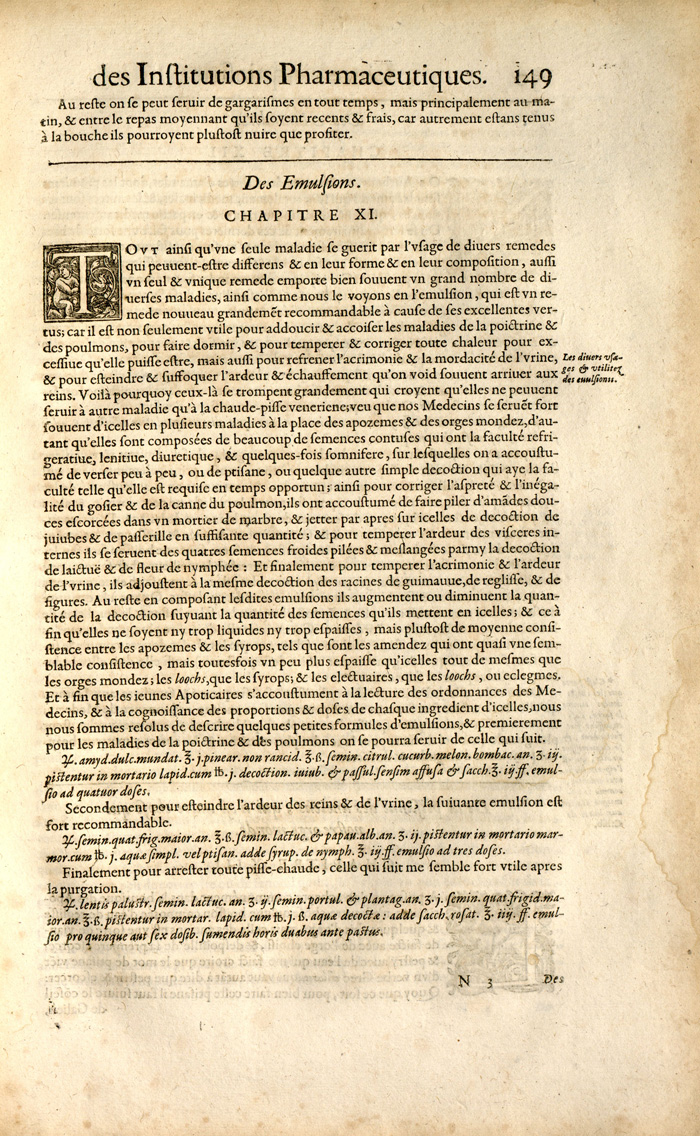 des Inſtitutions Pharmaceutiques. 149
Au reſte on ſe peut ſeruir de gargariſmes en tout temps, mais principalement au ma-
tin, & entre le repas moyennant qu'ils ſoyent recents & frais, car autrement eſtans tenus
à la bouche ils pourroyent pluſtoſt nuire que profiter.
Des Emulſions.
CHAPITRE XI.
TOVT ainſi qu'vne ſeule maladie ſe guerit par l'vſage de diuers remedes
qui peuuent-eſtre differens & en leur forme & en leur compoſition, auſſi
vn ſeul & vnique remede emporte bien ſouuent vn grand nombre de di-
uerſes maladies, ainſi comme nous le voyons en l'emulſion, qui eſt vn re-
mede nouueau grandemẽt recommandable à cauſe de ſes excellentes ver-
tus; car il eſt non ſeulement vtile pour addoucir & accoiſer les maladies de la poictrine &
des poulmons, pour faire dormir, & pour temperer & corriger toute chaleur pour ex-
ceſſiue qu'elle puiſſe eſtre, mais auſſi pour refrener l'acrimonie & la mordacité de l'vrine,
& pour eſteindre & ſuffoquer l'ardeur & eſchauffement qu'on void ſouuent arriuer aux
reins. Voilà pourquoy ceux-là ſe trompent grandement qui croyent qu'elles ne peuuent
ſeruir à autre maladie qu'à la chaude-piſſe veneriene; veu que nos Medecins ſe ſeruẽt fort
ſouuent d'icelles en pluſieurs maladies à la place des apozemes & des orges mondez, d'au-
tant qu'elles ſont compoſées de beaucoup de ſemences contuſes qui ont la faculté refri-
geratiue, lenitiue, diuretique, & quelques-fois ſomnifere, ſur leſquelles on a accouſtu-
mé de verſer peu à peu, ou de ptiſane, ou quelque autre ſimple decoction qui aye la fa-
culté telle qu'elle eſt requiſe en temps opportun; ainſi pour corriger l'aſpreté & l'inéga-
lité du goſier & de la canne du poulmon, ils ont accouſtumé de faire piler d'amãdes dou-
ces eſcorcées dans vn mortier de marbre, & jetter par apres ſur icelles de decoction de
juiubes & de paſſerille en ſuffiſante quantité; & pour temperer l'ardeur des viſceres in-
ternes ils ſe ſeruent des quatres ſemences froides pilées & meſlangées parmy la decoction
de laictuë & de fleur de nymphée: Et finalement pour temperer l'acrimonie & l'ardeur
de l'vrine, ils adjouſtent à la meſme decoction des racines de guimauue, de regliſſe, & de
figures. Au reſte en compoſant leſdites emulſions ils augmentent ou diminuent la quan-
tité de la decoction ſuyuant la quantité des ſemences qu'ils mettent en icelles; & ce à
fin qu'elles ne ſoyent ny trop liquides ny trop eſpaiſſes, mais pluſtoſt de moyenne conſi-
ſtence entre les apozemes & les ſyrops, tels que ſont les amendez qui ont quaſi vne ſem-
blable conſiſtence, mais toutesfois vn peu plus eſpaiſſe qu'icelles tout de meſmes que
les orges mondez; les loochs, que les ſyrops; & les electuaires, que les loochs, ou eclegmes.
Et à fin que les ieunes Apoticaires s'accouſtument à la lecture des ordonnances des Me-
decins, & à la cognoiſſance des proportions & doſes de chaſque ingredient d'icelles, nous
nous ſommes reſolus de deſcrire quelques petites formules d'emulſions, & premierement
pour les maladies de la poictrine & des poulmons on ſe pourra ſeruir de celle qui ſuit.
Les diuers vſa-
ges & vtilitez
des emulſions.
℞. amyd. dulc. mundat. ℥. j. pinear. non rancid. ℥. ß. ſemin. citrul. cucurb. melon. bombac. an. ʒ. iij.
piſtentur in mortario lapid. cum ℔. j. decoction. iuiub. & paſſul. ſenſim affuſa & ſacch. ℥. iij. ff. emul-
ſio ad quatuor doſes.
Secondement pour eſteindre l'ardeur des reins & de l'vrine, la ſuiuante emulſion eſt
fort recommandable.
℞. ſemin. quat. frig. maior. an. ℥. ß. ſemin. lactuc. & papau. alb. an. ʒ. ij. piſtentur in mortario mar-
mor. cum ℔. j. aquæ ſimpl. vel ptiſan. adde ſyrup. de nymph. ℥. iij. ff. emulſio ad tres doſes.
Finalement pour arreſter toute piſſe-chaude, celle qui ſuit me ſemble fort vtile apres
la purgation.
℞. lentis paluſtr. ſemin. lactuc. an. ʒ. ij. ſemin. portul. & plantag. an. ʒ. j. ſemin. quat. frigid. ma-
ior. an. ℥. ß. piſtentur in mortar. lapid. cum ℔. j. ß. aquæ decoctæ: adde ſacch. roſat. ℥. iiij. ff. emul-
ſio pro quinque aut ſex doſib. ſumendis horis duabus ante paſtus.
N 3 Des